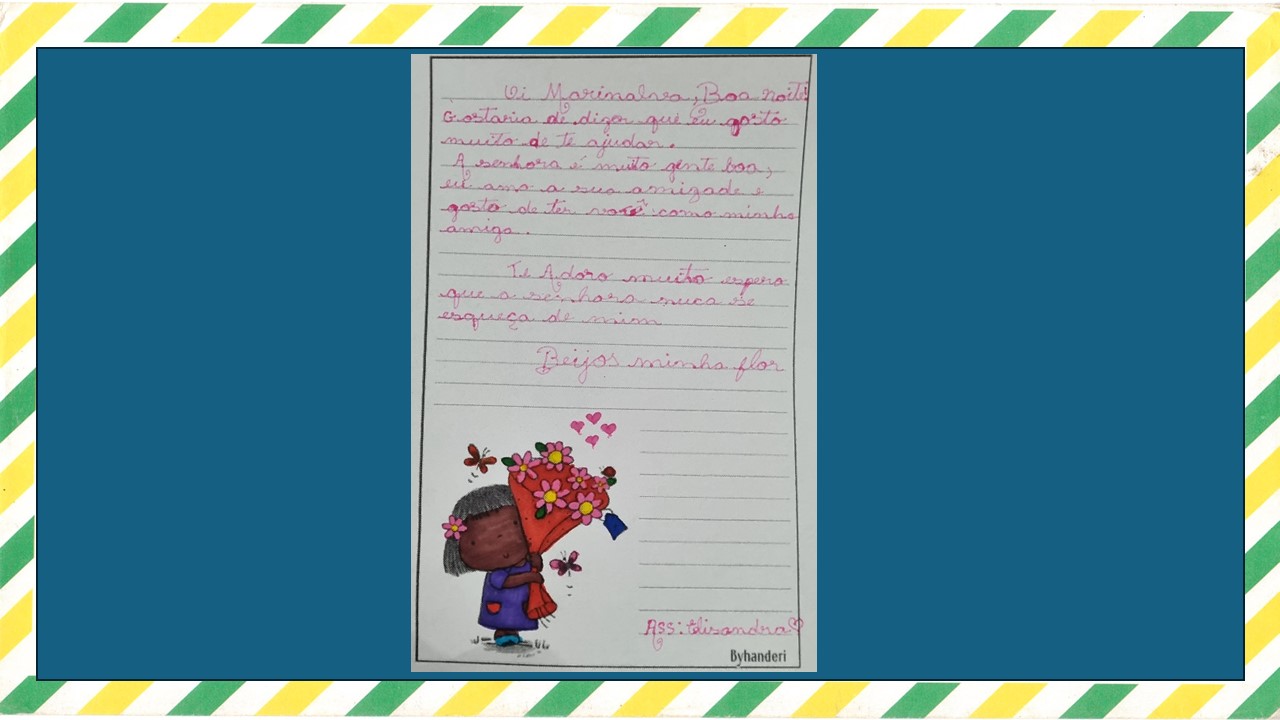 Oi Marinalva, Boa noite!
Gostaria de dizer que eu gosto
muito de te ajudar.
A senhora é muito gente boa,
eu amo a sua amizade e
gosto de ter você como minha
amiga.
Te Adoro muito espero
que a senhora nuca se
esqueça de mim
Beijos minha flor
Ass: Elisandra
Byhanderi